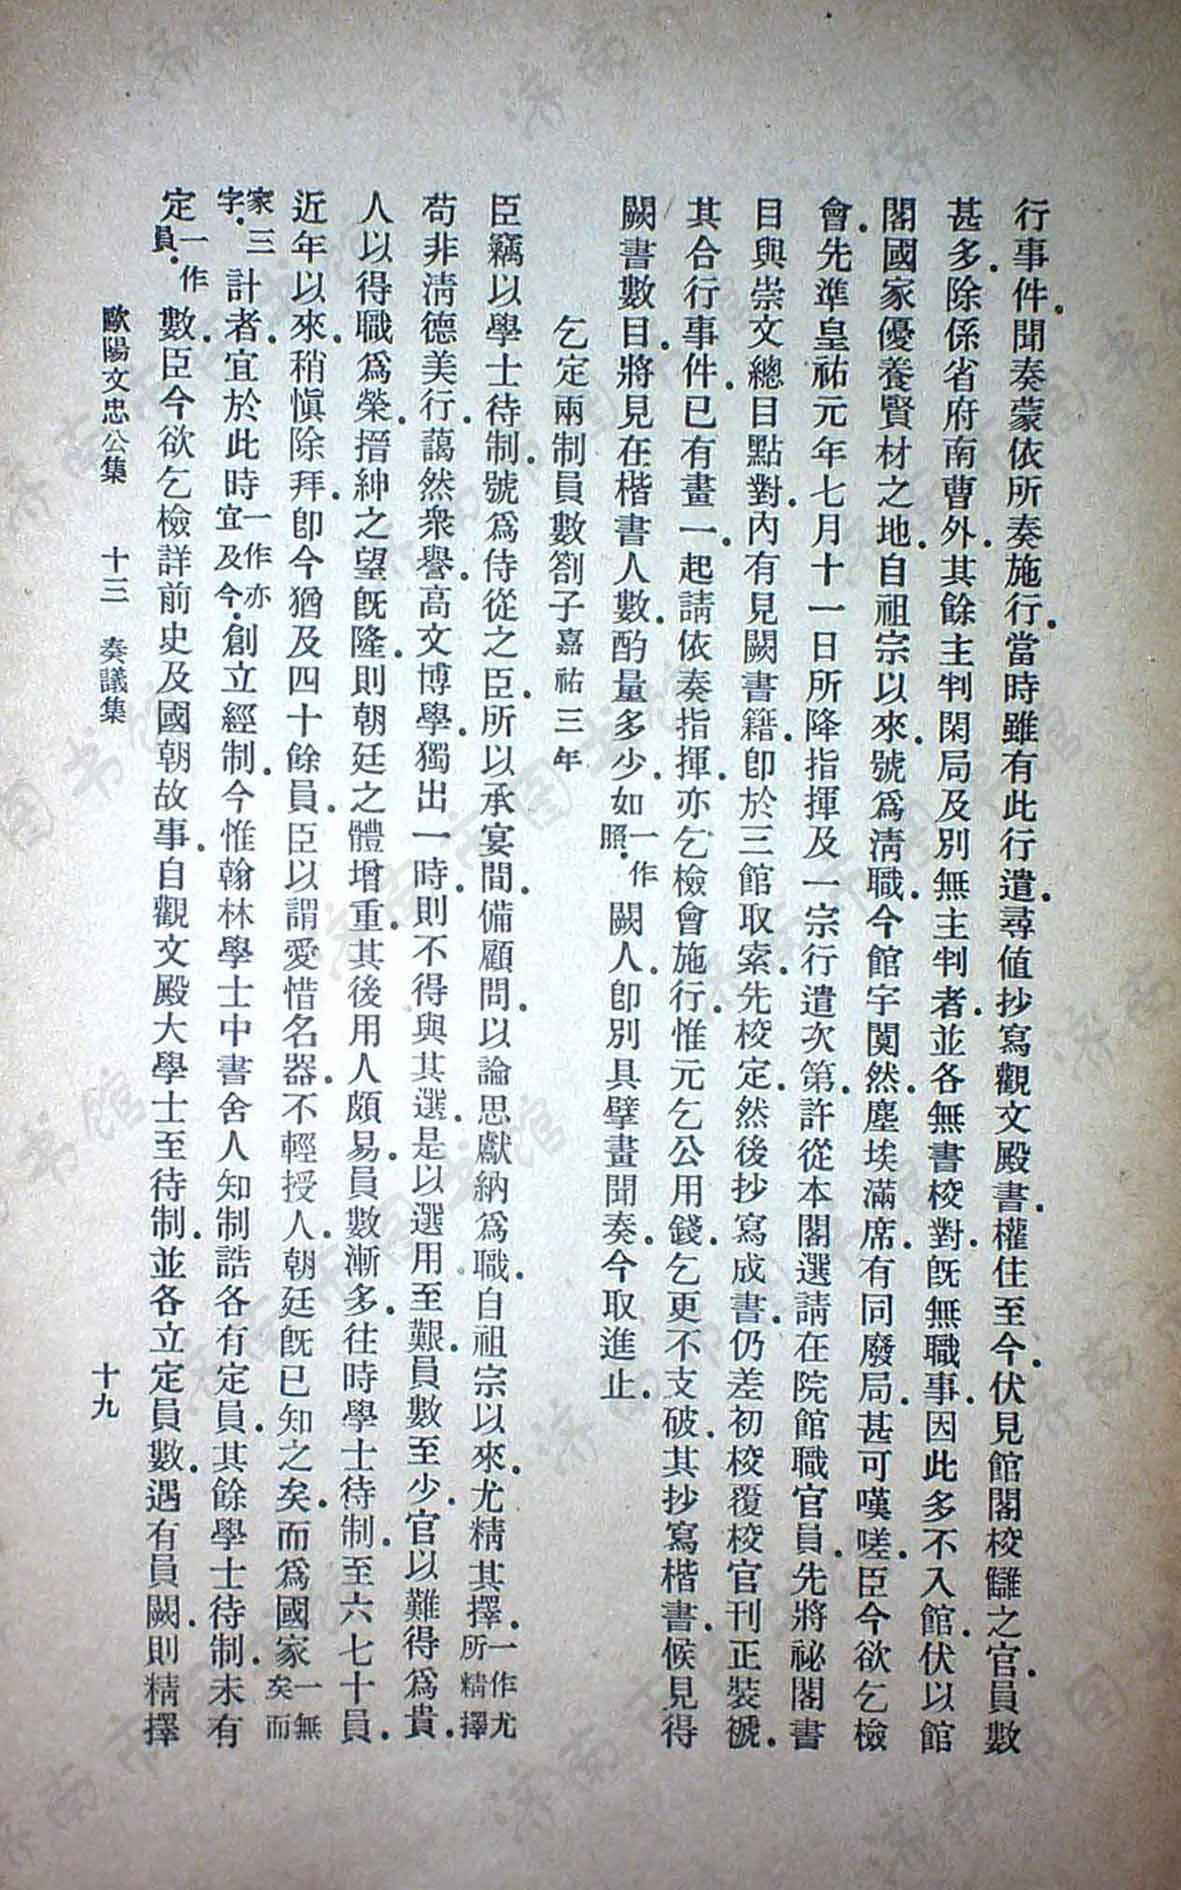 行事件聞奏蒙依所奏施行當時雖有此行遣尋值抄寫觀文殿書權住至今伏見館閣校讎之官員數
甚多除係省府南曹外其餘主判閑局及別無主判者並各無書校對旣無職事因此多不入館伏以館
閣國家優養賢材之地自祖宗以來號爲淸職今館宇闃然塵埃滿席有同廢局甚可嘆嗟臣今欲乞檢
會先準皇祐元年七月十一日所降指揮及一宗行遣次第許從本閣選請在院館職官員先將祕閣書
目與崇文總目點對內有見闕書籍卽於三館取索先校定然後抄寫成書仍差初校覆校官刊正裝褫
其合行事件已有畫一起請依奏指揮亦乞檢會施行惟元乞公用錢乞更不支破其抄寫楷書候見得
闕書數目將見在楷書人數酌量多少如一作照闕人卽別具擘畫聞奏今取進止
乞定兩制員數劄子嘉祐三年
臣竊以學士待制號爲侍從之臣所以承宴間備顧問以論思獻納爲職自祖宗以來尤精其擇一作尤所精擇
苟非淸德美行藹然衆譽高文博學獨出一時則不得與其選是以選用至艱員數至少官以難得爲貴
人以得職爲榮搢紳之望旣隆則朝廷之體增重其後用人頗易員數漸多往時學士待制至六七十員
近年以來稍愼除拜卽今猶及四十餘員臣以謂愛惜名器不輕授人朝廷旣已知之矣而爲國家一無矣而
家三字計者宜於此時一作亦宜及今創立經制今惟翰林學士中書舍人知制誥各有定員其餘學士待制未有
定一作員數臣今欲乞檢詳前史及國朝故事自觀文殿大學士至待制並各立定員數遇有員闕則精擇
歐陽文忠公集 十三 奏議集 十九